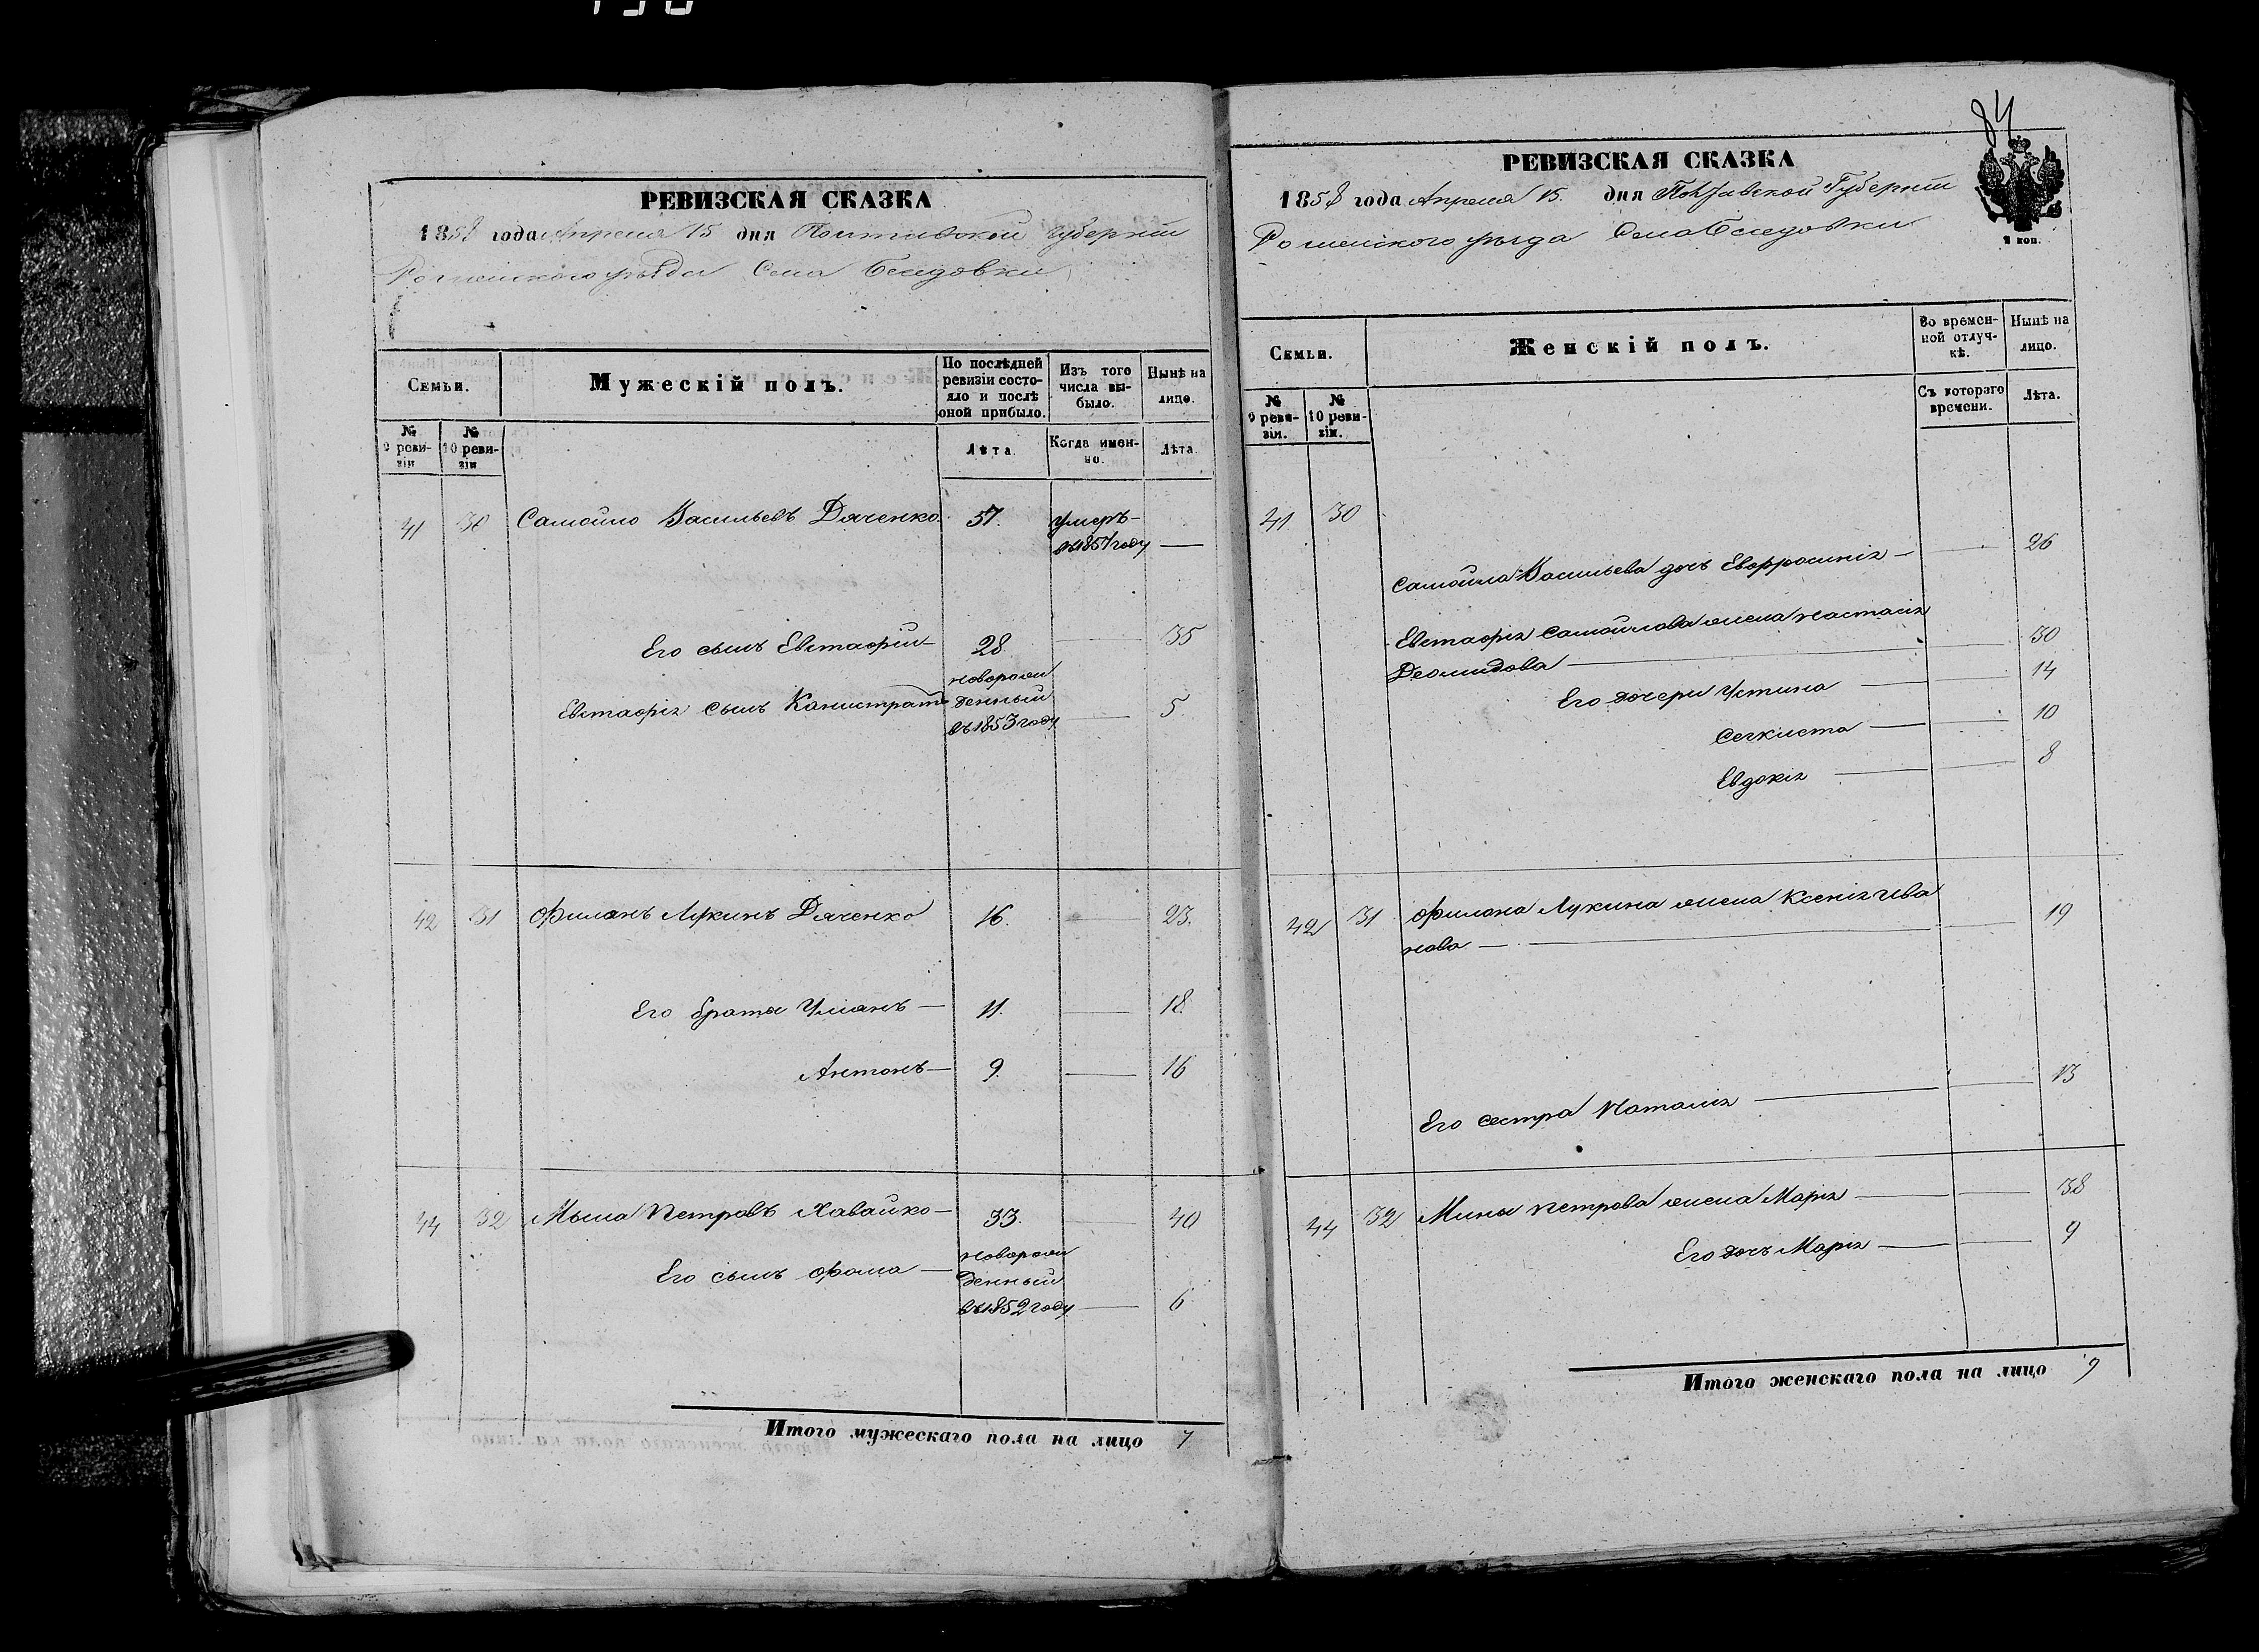 84
РЕВИЗСКАЯ СКАЗКА
1858 года Апреля 15 дня Полтавской Губерніи
Роменского уѣзда Села Беседовки
Семьи.
Мужескій полъ.
По послѣдней ревизіи состояло и послѣ оной прибыло.
Изъ того числа выбыло.
Нынѣ на лицо.
№ 9 ревизіи
№ 10 ревизіи
Лѣта.
Когда именно.
Лѣта.
41 30 Самойло Васильевъ Дяченко 57. умеръ
въ 1857 году —
Его сынъ Евстафій — 28 — 35
Евстафія сынъ Каллистратъ новорожденный въ 1853 году — 5.
42 31 Филонъ Лукинъ Дяченко 16. — 23.
Его братья Ульянъ — 11. — 18.
Антонъ — 9. — 16
44 32 Мына Петровъ Хавайко — 33. — 40
Его сынъ Фома — новорожденный въ 1852 году — 6
Итого мужескаго пола на лицо 7
РЕВИЗСКАЯ СКАЗКА
1858 года Апреля 15. дня Полтавской Губерніи
Роменского уѣзда Села Беседовки
2 коп.
Семьи.
Женскій полъ.
Во временной отлучкѣ.
Нынѣ на лицо.
№ 9 ревизіи.
№ 10 ревизіи.
Съ котораго времени.
Лѣта.
41 30
Самойла Васильева дочь Евфросинія — — 26
Евстафія Самойлова жена Настасія
Деомидова — — 30
Его дочери Устина — — 14
Феклиста — — 10
Евдокія — — 8
42 31 Филона Лукина жена Ксенія Ива
нова — — 19
Его сестра Наталія — — 13
44 32 Мины Петрова жена Марія — — 38
Его дочь Марія — — 9
Итого женскаго пола на лицо 9